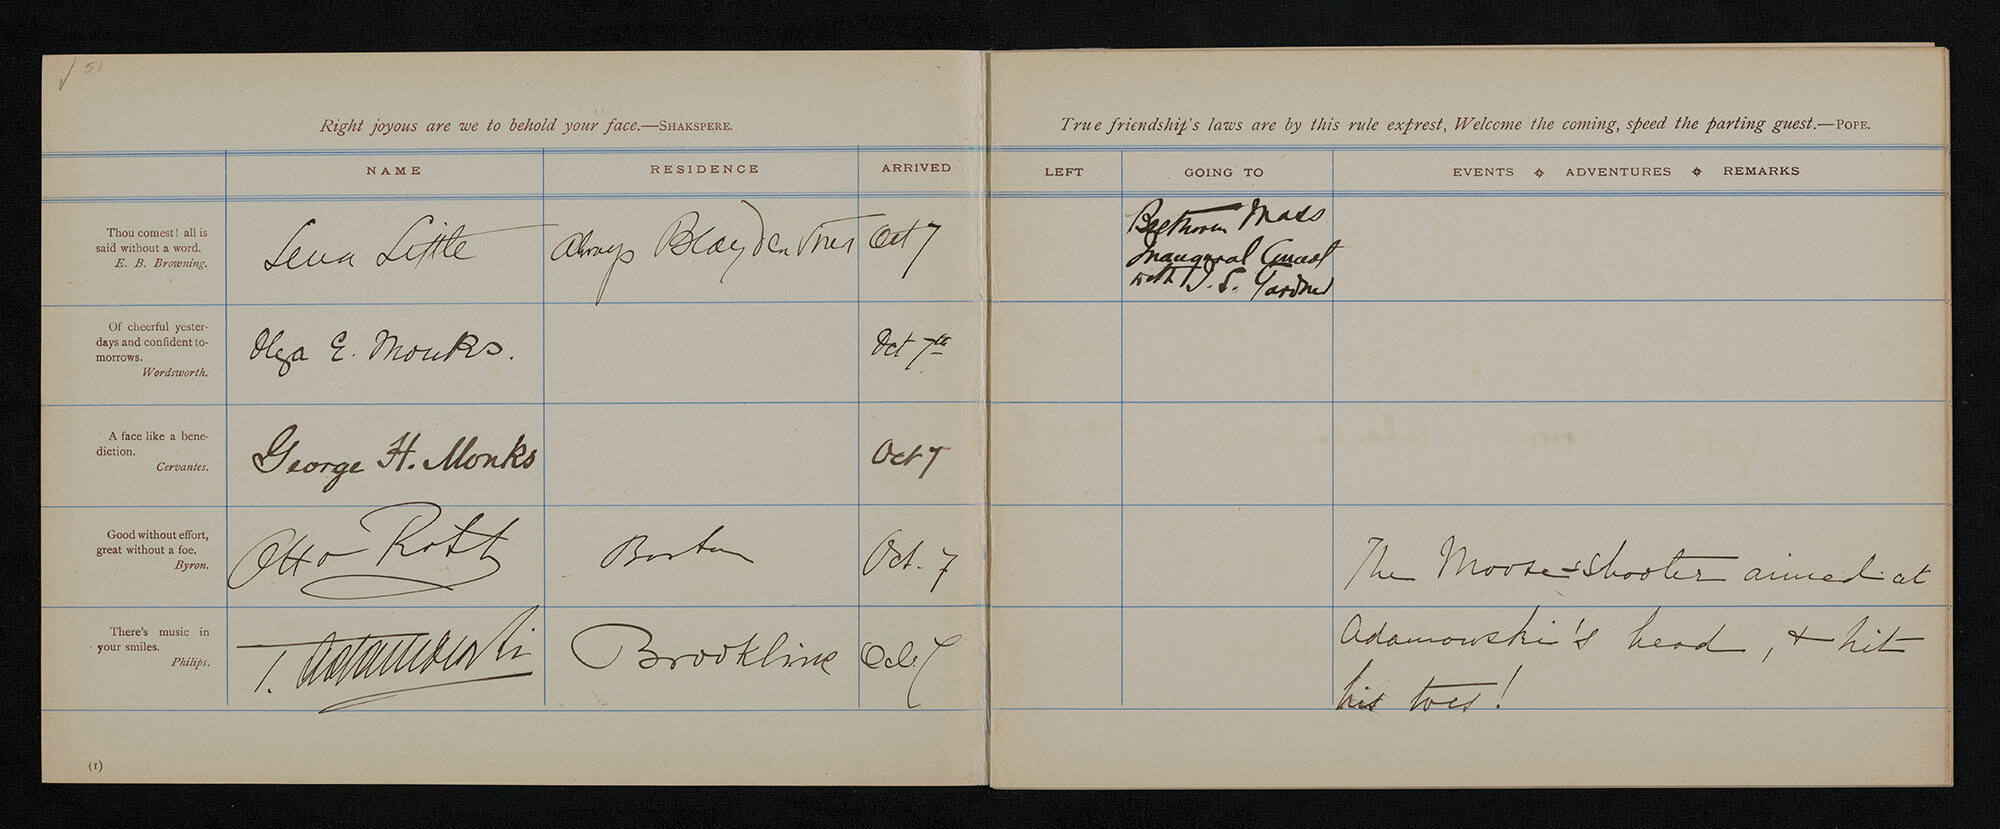 51
Right joyous are we to behold your face.—SHAKSPERE.
NAME RESIDENCE ARRIVED
Thou comest! all is
said without a word.
E. B. Browning.
Lena Little Always Oct 7
Of cheerful yester-
days and confident to-
morrows.
Wordsworth.
Olga E. Monks. Oct 7th
A face like a bene-
diction.
Cervantes.
George H. Monks Oct 7
Good without effort,
great without a foe.
Byron.
Otto Roth Boston Oct. 7
There's music in
your smiles.
Philips.
T. Adamowski Brookline Oct. 7
(1)
True friendship's laws are by this rule exprest, Welcome the coming, speed the parting guest.—POPE.
LEFT GOING TO EVENTS ADVENTURES REMARKS
Beethoven Mass
Inaugural Concert
with I. S. Gardner
The Moose-shooter aimed at
Adamowski's head, & hit
his toes!